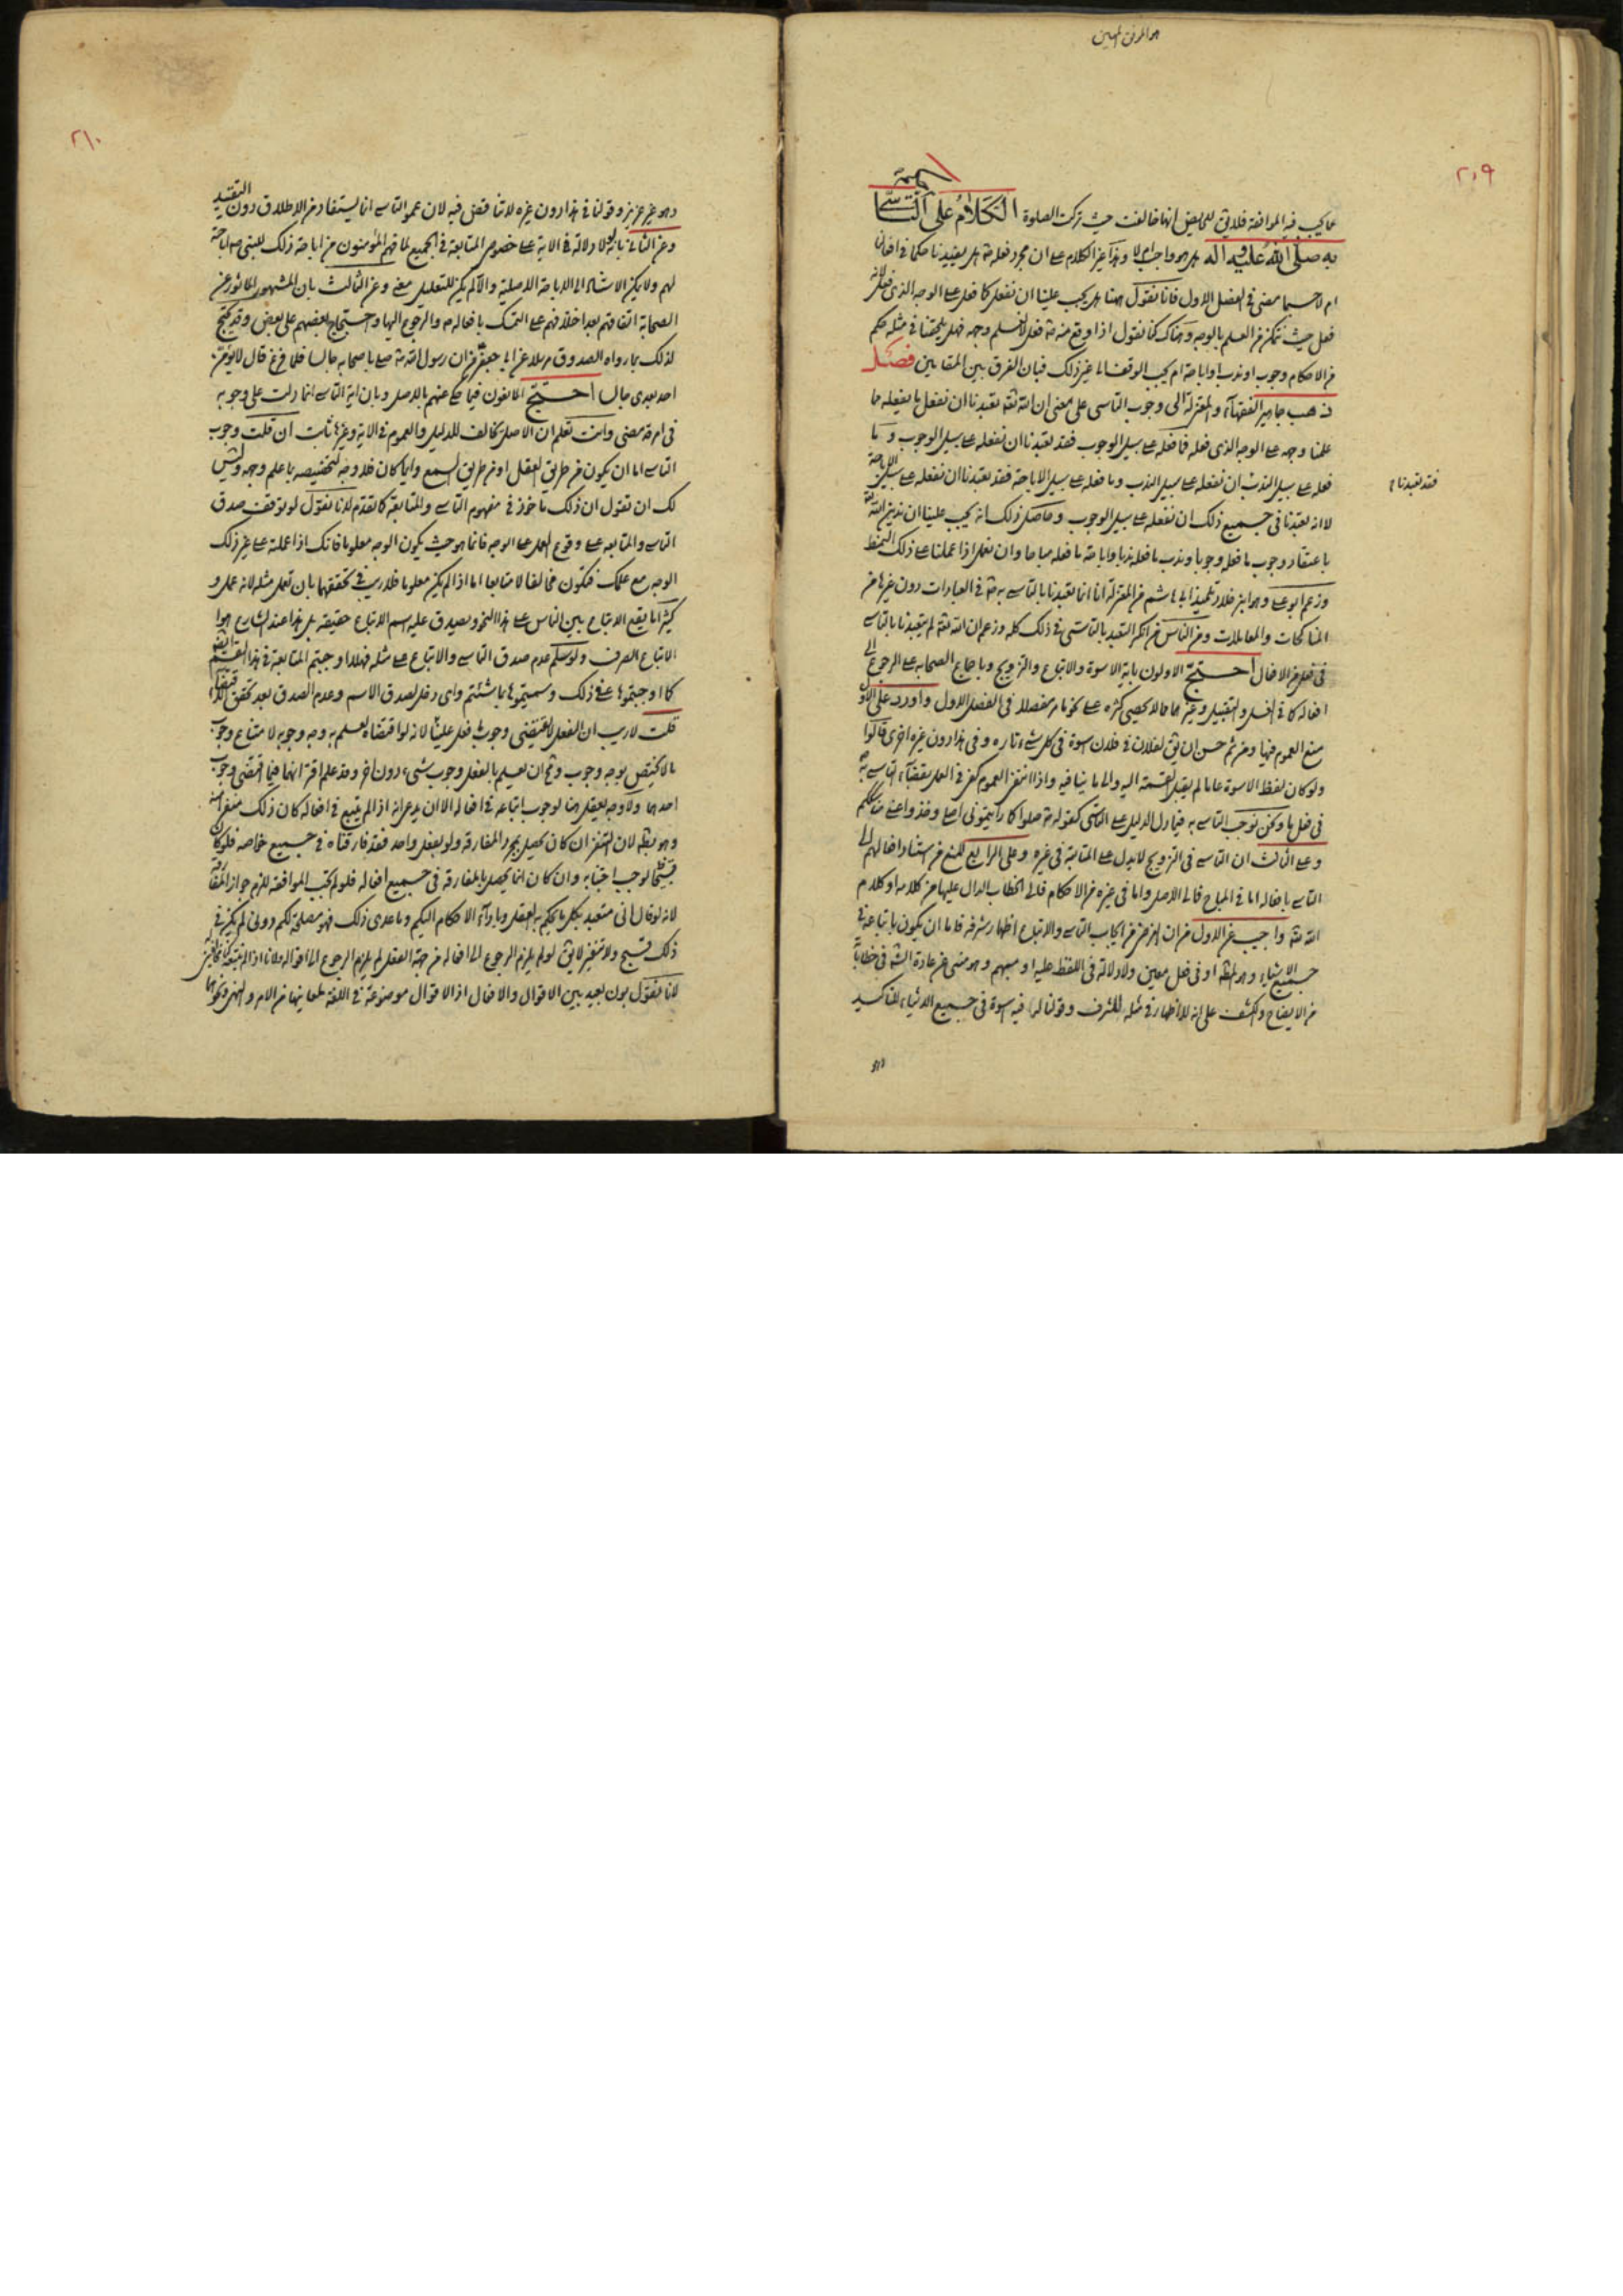 هو الموفق المعين
٢٠٩
تتمة
مما يجب فيه الموافقة فلا يق للحايض انها خالفت حيث تركت الصلوة الكلام على التاسى
به صلى الله عليه واله هل هو واجب ام لا وهذا غير الكلام على ان مجرد فعله هل يفيدنا حكما في افعالنا
ام لا حسبما مضى فى الفصل الاول فانا نقول هنا هل يجب علينا ان نفعل كما فعل على الوجه الذى فعل لانه
فعل حيث نتمكن من العلم بالوجه وهناك كنا نقول اذا وقع منه فعل لا نعلم وجهه فهل يلحقنا في مثله حكم
من الاحكام وجوب او ندب او اباحة ام يجب الوقف الى غير ذلك فبان الفرق بين المقامين فصل
ذهب جماهير الفقهآء والمعتزلة الى وجوب التاسى على معنى ان الله تعالى تعبدنا ان نفعل ما يفعله ما
علمنا وجهه على الوجه الذى فعله فما فعله على سبيل الوجوب فقد تعبدنا ان نفعله على سبيل الوجوب وما
فعله على سبيل الندب ان نفعله على سبيل الندب وما فعله على سبيل الاباحة فقد تعبدنا ان نفعله على سبيل الاباحة
فقد تعبدنا
لا انه تعبدنا فى جميع ذلك ان نفعله على سبيل الوجوب وحاصل ذلك انه يجب علينا ان ندين الله
باعتقاد وجوب ما فعله وجوبا وندب ما فعله ندبا واباحة ما فعله مباحا وان نعمل اذا عملنا على ذلك النمط
وزعم ابو على وهو ابن خلاد تلميذ ابى هاشم من المعتزلة انا انما تعبدنا بالتاسى به في العبادات دون غيرها من
المناكحات والمعاملات ومن الناس من انكر التعبد بالتاسى في ذلك كله وزعم ان الله لم يتعبدنا بالتاسى
فى فعل من الافعال احتج الاولون باية الاسوة والاتباع والتزويج وباجماع الصحابة على الرجوع الى
افعاله كما في الغسل والتقبيل وغيرهما مما لا يحصى كثرة على نحو ما مر مفصلا فى الفصل الاول واورد على الاول
منع العموم فيها ومن ثم حسن ان يق لفلان في فلان اسوة فى كل شىء تارة وفى هذا دون غيره اخرى قالوا
ولو كان لفظ الاسوة عاما لم يقبل القسمة اليه والى ما ينافيه واذا انتفى العموم كفى في العمل بمقتضاه التاسى به
فى فعل ما ونحن نوجب التاسى به فيما دل الدليل على التاسى كقوله صلوا كما رايتمونى اصلى وخذوا عنى مناسككم
وعلى الثالث ان التاسى فى التزويج لا يدل على المتابعة فى غيره وعلى الرابع المنع من استناد افعالهم الى
التاسى بافعاله اما في المباح فالى الاصل واما فى غيره من الاحكام فالى الخطاب الدال عليها من كلامه او كلام
الله واجيب عن الاول من ان الغرض من ايجاب التاسى والاتباع اظهار شرفه فاما ان يكون باتباعه في
جميع الاشياء وهو المطلوب او فى فعل معين ولا دلالة فى اللفظ عليه او مبهم وهو منفى عن عادة الشرع في خطاباته
من الايضاح والكشف على انه لا اظهار في مثله للشرف وقولنا لنا فيه اسوة فى جميع الاشياء للتاكيد
وهو
٢١٠
وهو غير عزيز وقولنا في هذا دون غيره لا تناقض فيه لان عموم التاسى انما يستفاد من الاطلاق دون التقييد
وعن الثانى بانه لو لا دلالة في الاية على خصوص المتابعة في الجميع لما فهم المؤمنون من اباحة ذلك للنبى اباحته
لهم ولا يمكن الاستناد الى الاباحة الاصلية والا لم يكن للتعليل معنى وعن الثالث بان المشهور الماثور عن
الصحابة اتفاقهم بعد اختلافهم على التمسك بافعاله والرجوع اليها واحتجاج بعضهم على بعض وقد يحتج
لذلك بما رواه الصدوق مرسلا عن ابى جعفر من ان رسول الله صلى باصحابه جالسا فلما فرغ قال لا يؤمن
احد بعدى جالسا احتج المانعون فيما حكى عنهم بالاصل وبان اية التاسى انما دلت على وجوبه
فى امر قد مضى وانت تعلم ان الاصل يخالف للدليل والعموم في الاية وغيرها ثابت ان قلت وجوب
التاسى اما ان يكون من طريق العقل او من طريق السمع وايا ما كان فلا وجه لتخصيصه بما علم وجهه وليس
لك ان تقول ان ذلك ماخوذ في مفهوم التاسى والمتابعة كما تقدم لانا نقول لو توقف صدق
التاسى والمتابعة على وقوع العمل على الوجه فانما هو حيث يكون الوجه معلوما فانك اذا عملته على غير ذلك
الوجه مع علمك فتكون مخالفا لا متابعا اما اذا لم يكن معلوما فلا ريب في تحققهما بان تعمل مثله لانه عمل و
كثيرا ما يقع الاتباع بين الناس على هذا النحو ويصدق عليه اسم الاتباع حقيقة بل هذا عند الشارع هو
الاتباع الصرف ولو سلم عدم صدق التاسى والاتباع على مثله فهلا اوجبتم المتابعة في هذا القسم ايضا
كما اوجبتموها في ذلك وسميتموها ما شئتم واى دخل لصدق الاسم وعدم الصدق بعد تحقق
قلت لا ريب ان الفعل لا يقتضى وجوب فعل علينا لانه لو اقتضاه لعلم به وجه وجوبه لامتناع وجوب
ما لا يختص بوجه وجوب وقبح ان يعلم بالعقل وجوب شىء دون اخر وقد علم اقترانهما فيما اقتضى وجوب
احدهما ولا وجه يعقل هنا لوجوب اتباعه في افعاله الا ان يدعى انه اذا لم يتبع في افعاله كان ذلك منفرا عنه
وهو بط لان التنفير ان كان يحصل بمجرد المفارقة ولو بفعل واحد فقد فارقناه في جميع خواصه فلو كان
قبيحا لوجب اجتنابه وان كان انما يحصل بالمفارقة في جميع افعاله فلو لم تجب الموافقة للزم جواز المفارقة
لانه لو قال انى متعبد بكل ما يحكم به العقل وباداء الاحكام اليكم وما عدى ذلك فهو مصلحة لكم دونى لم يكن في
ذلك قبيح ولا تنفير لا يق لو لم يلزم الرجوع الى افعاله من جهة العقل لم يلزم الرجوع الى اقواله ولانا اذا لم نتبعه كنا مخالفين له
لانا نقول بون بعيد بين الاقوال والافعال اذ الاقوال موضوعة في اللغة لمعانيها من الامر والنهى ونحوهما